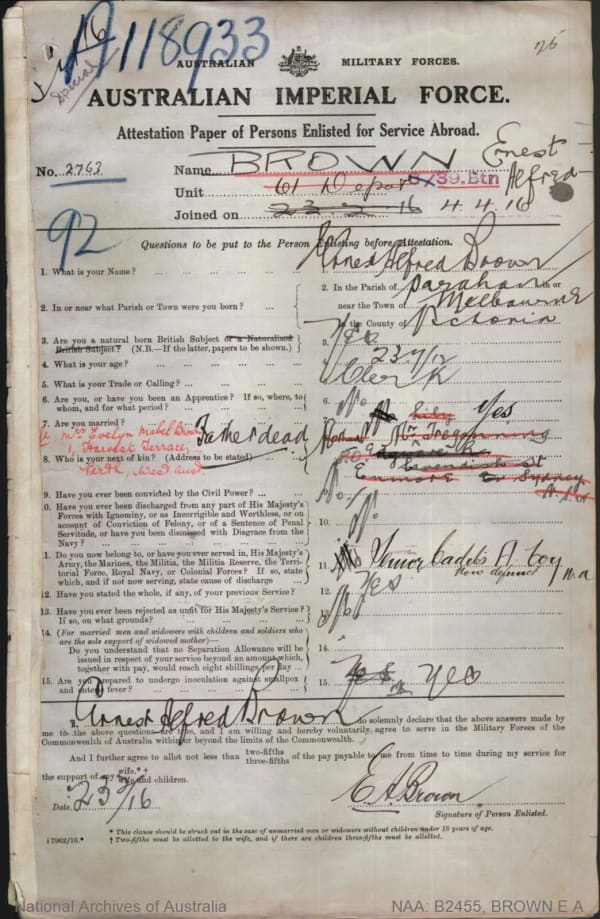 1/16
Special
A118933
25
AUSTRALIAN MILITARY FORCES.
AUSTRALIAN IMPERIAL FORCE.
Attestation Paper of Persons Enlisted for Service Abroad.
No. 2763
Name BROWN Ernest Alfred
Unit 61 Depot 39. Btn
Joined on 23 2 16 4.4.16
92
Questions to be put to the Person Enlisting before Attestation.
1. What is your Name? ... Ernest Alfred Brown
2. In or near what Parish or Town were you born? ... 2. In the Parish of Parahan in or
near the Town of Melbourne
in the County of Victoria
3. Are you a natural born British Subject or a Naturalised
British Subject? (N.B.—If the latter, papers to be shown.) 3. Yes
4. What is your age? ... 23
5. What is your Trade or Calling? ... Clerk
6. Are you, or have you been an Apprentice? If so, where, to
whom, and for what period? ... 6. No
7. Are you married? Yes
Mrs Evelyn Mabel Brown
1, Harvest Terrace,
Perth, West Aust.
Father dead
8. Who is your next of kin? (Address to be stated)
Cavendish St
Enmore Sydney
9. Have you ever been convicted by the Civil Power? ... 9. No
10. Have you ever been discharged from any part of His Majesty's
Forces with Ignominy, or as Incorrigible and Worthless, or on
account of Conviction of Felony, or of a Sentence of Penal
Servitude, or have you been dismissed with Disgrace from the
Navy? ... 10. No
11. Do you now belong to, or have you ever served in, His Majesty's
Army, the Marines, the Militia, the Militia Reserve, the Terri-
torial Force, Royal Navy, or Colonial Forces? If so, state
which, and if not now serving, state cause of discharge 11. Senior Cadets A. Coy
now defunct W.A
12. Have you stated the whole, if any, of your previous Service? 12. Yes
13. Have you ever been rejected as unfit for His Majesty's Service?
If so, on what grounds? 13. No
14. (For married men and widowers with children and soldiers who
are the sole support of widowed mother)—
Do you understand that no Separation Allowance will be
issued in respect of your service beyond an amount which,
together with pay, would reach eight shillings per day ... 14.
15. Are you prepared to undergo inoculation against smallpox
and enteric fever? ... 15. Yes Yes
I, Ernest Alfred Brown do solemnly declare that the above answers made by
me to the above questions are true, and I am willing and hereby voluntarily agree to serve in the Military Forces of the
Commonwealth of Australia within or beyond the limits of the Commonwealth.
And I further agree to allot not less than two-fifths three-fifths of the pay payable to me from time to time during my service for
the support of my wife.* † wife and children.
Date 23 2/16
E A Brown
Signature of Person Enlisted.
* This clause should be struck out in the case of unmarried men or widowers without children under 18 years of age.
i7962/16.* † Two-fifths must be allotted to the wife, and if there are children three-fifths must be allotted.
National Archives of Australia
NAA: B2455, BROWN E A